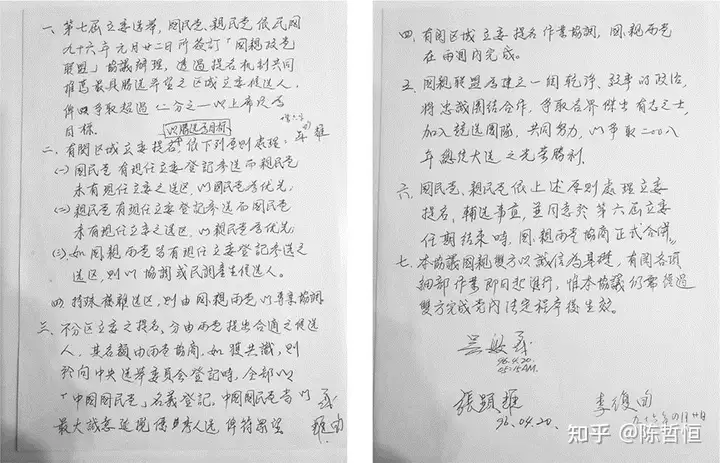 一、第七屆立委選舉，國民黨、親民黨依民國
九十六年元月廿二日所簽訂「國親政黨
聯盟」協議辦理，透過提名机制共同
推薦最具勝選希望之区域立委候選人，
俾爭取超過二分之一以上席次為
目標。
以勝選為目標
二、有關区域立委提名依下列原則處理：
(一)國民党有現任立委登記參选而親民党
未有現任立委之选区，以國民党為优先；
(二)親民党有現任立委登記參选而國民党
未有現任立委之选区，以親民党為优先；
(三)如國親兩党皆有現任立委登記參选之
选区，則以協調或民調產生候选人。
四 特殊複雜选区，則由國親兩党以專業協調
三、不分区立委之提名，分由兩党提出合適之候选
人，其名額由兩党協商，如獲共識，則
於向中央选举委員会登記時，全部以
「中國國民党」名義登記，中國國民党當以
最大誠意延攬優秀人选，俾符眾望
四、有関区域立委提名作業協調，國親兩党
在兩週內完成。
五、國親联盟為建立一個乾淨、效率的政治，
將忠誠團結合作，爭取各界傑出有志之士，
加入競选團隊，共同努力，以爭取二00八
年總統大选之光榮勝利。
六、國民党、親民党依上述原則處理立委
提名、輔选事宜，並同意於第六屆立委
任期結束時，國親兩党協商正式合併。
七、本協議國親雙方以誠信為基礎，有関各項
細部作業即日起進行，惟本協議仍需經過
雙方完成党內法定程序後生效。
吳敦義
96.4.20.
05:15AM.
張顯耀
96.04.20.
李復甸
九十六年四月廿日
知乎 @陈哲恒